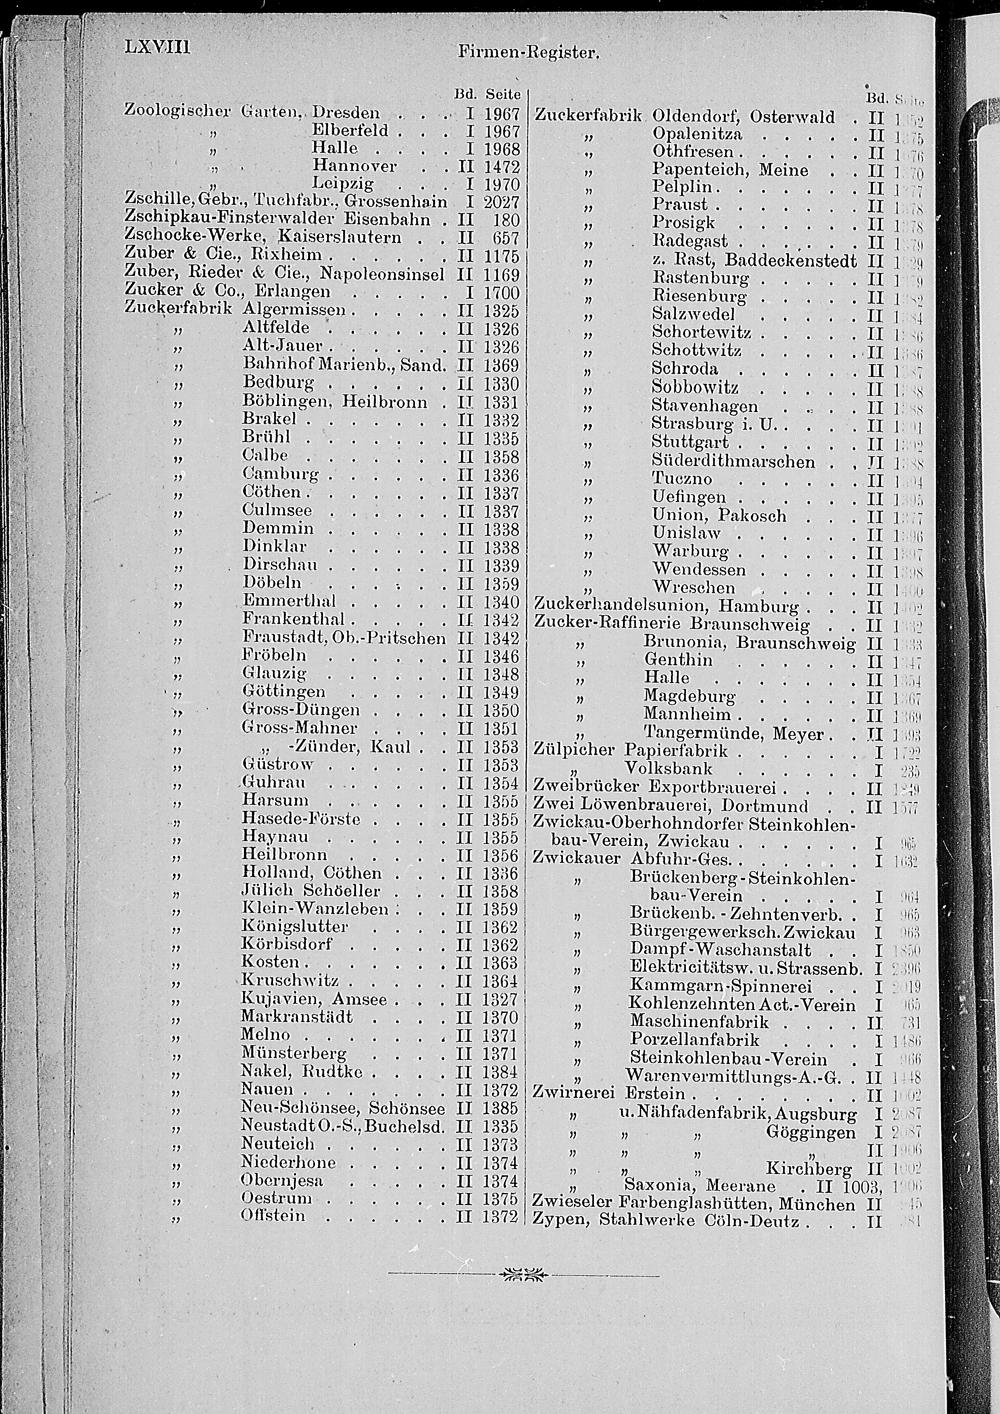 LXVIII
Firmen-Register.
Bd. Seite
Zoologischer Garten, Dresden . . . I 1967
„ Elberfeld . . . I 1967
„ Halle . . . . I 1968
„ Hannover . . II 1472
„ Leipzig . . . I 1970
Zschille, Gebr., Tuchfabr., Grossenhain I 2027
Zschipkau-Finsterwalder Eisenbahn . II 180
Zschocke-Werke, Kaiserslautern . . II 657
Zuber & Cie., Rixheim . . . . . . II 1175
Zuber, Rieder & Cie., Napoleonsinsel II 1169
Zucker & Co., Erlangen . . . . . I 1700
Zuckerfabrik Algermissen . . . . . II 1325
„ Altfelde . . . . . . II 1326
„ Alt-Jauer . . . . . . II 1326
„ Bahnhof Marienb., Sand. II 1369
„ Bedburg . . . . . . II 1330
„ Böblingen, Heilbronn . II 1331
„ Brakel . . . . . . . II 1332
„ Brühl . . . . . . . II 1335
„ Calbe . . . . . . . II 1358
„ Camburg . . . . . . II 1336
„ Cöthen . . . . . . . II 1337
„ Culmsee . . . . . . II 1337
„ Demmin . . . . . . II 1338
„ Dinklar . . . . . . II 1338
„ Dirschau . . . . . . II 1339
„ Döbeln . . . . . . II 1359
„ Emmerthal . . . . . II 1340
„ Frankenthal . . . . . II 1342
„ Fraustadt, Ob.-Pritschen II 1342
„ Fröbeln . . . . . . II 1346
„ Glauzig . . . . . . II 1348
„ Göttingen . . . . . II 1349
„ Gross-Düngen . . . . II 1350
„ Gross-Mahner . . . . II 1351
„ „ -Zünder, Kaul . . II 1353
„ Güstrow . . . . . . II 1353
„ Guhrau . . . . . . II 1354
„ Harsum . . . . . . II 1355
„ Hasede-Förste . . . . II 1355
„ Haynau . . . . . . II 1355
„ Heilbronn . . . . . II 1356
„ Holland, Cöthen . . . II 1336
„ Jülich Schöeller . . . II 1358
„ Klein-Wanzleben . . . II 1359
„ Königslutter . . . . II 1362
„ Körbisdorf . . . . . II 1362
„ Kosten . . . . . . . II 1363
„ Kruschwitz . . . . . II 1364
„ Kujavien, Amsee . . . II 1327
„ Markranstädt . . . . II 1370
„ Melno . . . . . . . II 1371
„ Münsterberg . . . . II 1371
„ Nakel, Rudtke . . . . II 1384
„ Nauen . . . . . . . II 1372
„ Neu-Schönsee, Schönsee II 1385
„ Neustadt O.-S., Buchelsd. II 1335
„ Neuteich . . . . . . II 1373
„ Niederhone . . . . . II 1374
„ Obernjesa . . . . . II 1374
„ Oestrum . . . . . . II 1375
„ Offstein . . . . . . II 1372
Bd.
Zuckerfabrik Oldendorf, Osterwald . II
„ Opalenitza . . . . . II
„ Othfresen . . . . . . II
„ Papenteich, Meine . . II
„ Pelplin . . . . . . . II
„ Praust . . . . . . . II
„ Prosigk . . . . . . II
„ Radegast . . . . . . II
„ z. Rast, Baddeckenstedt II
„ Rastenburg . . . . . II
„ Riesenburg . . . . . II
„ Salzwedel . . . . . II
„ Schortewitz . . . . . II
„ Schottwitz . . . . . II
„ Schroda . . . . . . II
„ Sobbowitz . . . . . II
„ Stavenhagen . . . . II
„ Strasburg i. U. . . . . II
„ Stuttgart . . . . . . II
„ Süderdithmarschen . . II
„ Tuczno . . . . . . II
„ Uefingen . . . . . . II
„ Union, Pakosch . . . II
„ Unislaw . . . . . . II
„ Warburg . . . . . . II
„ Wendessen . . . . . II
„ Wreschen . . . . . II
Zuckerhandelsunion, Hamburg . . . II
Zucker-Raffinerie Braunschweig . . II
„ Brunonia, Braunschweig II
„ Genthin . . . . . . II
„ Halle . . . . . . . II
„ Magdeburg . . . . . II
„ Mannheim . . . . . . II
„ Tangermünde, Meyer . . II
Zülpicher Papierfabrik . . . . . . I
„ Volksbank . . . . . . I 235
Zweibrücker Exportbrauerei . . . . II
Zwei Löwenbrauerei, Dortmund . . II 1577
Zwickau-Oberhohndorfer Steinkohlen-
bau-Verein, Zwickau . . . . . . I 965
Zwickauer Abfuhr-Ges. . . . . . . I 1632
„ Brückenberg-Steinkohlen-
bau-Verein . . . . . I 964
„ Brückenb.-Zehntenverb. . I 965
„ Bürgergewerksch. Zwickau I 963
„ Dampf-Waschanstalt . . I 1850
„ Elektricitätsw. u. Strassenb. I 2396
„ Kammgarn-Spinnerei . . I
„ Kohlenzehnten Act.-Verein I 965
„ Maschinenfabrik . . . . II 731
„ Porzellanfabrik . . . . I 1486
„ Steinkohlenbau-Verein . I 966
„ Warenvermittlungs-A.-G. . II
Zwirnerei Erstein . . . . . . . . II
„ u. Nähfadenfabrik, Augsburg I
„ „ „ Göggingen I
„ „ „ „ II
„ „ „ Kirchberg II
„ Saxonia, Meerane . II 1003,
Zwieseler Farbenglashütten, München II
Zypen, Stahlwerke Cöln-Deutz . . . II